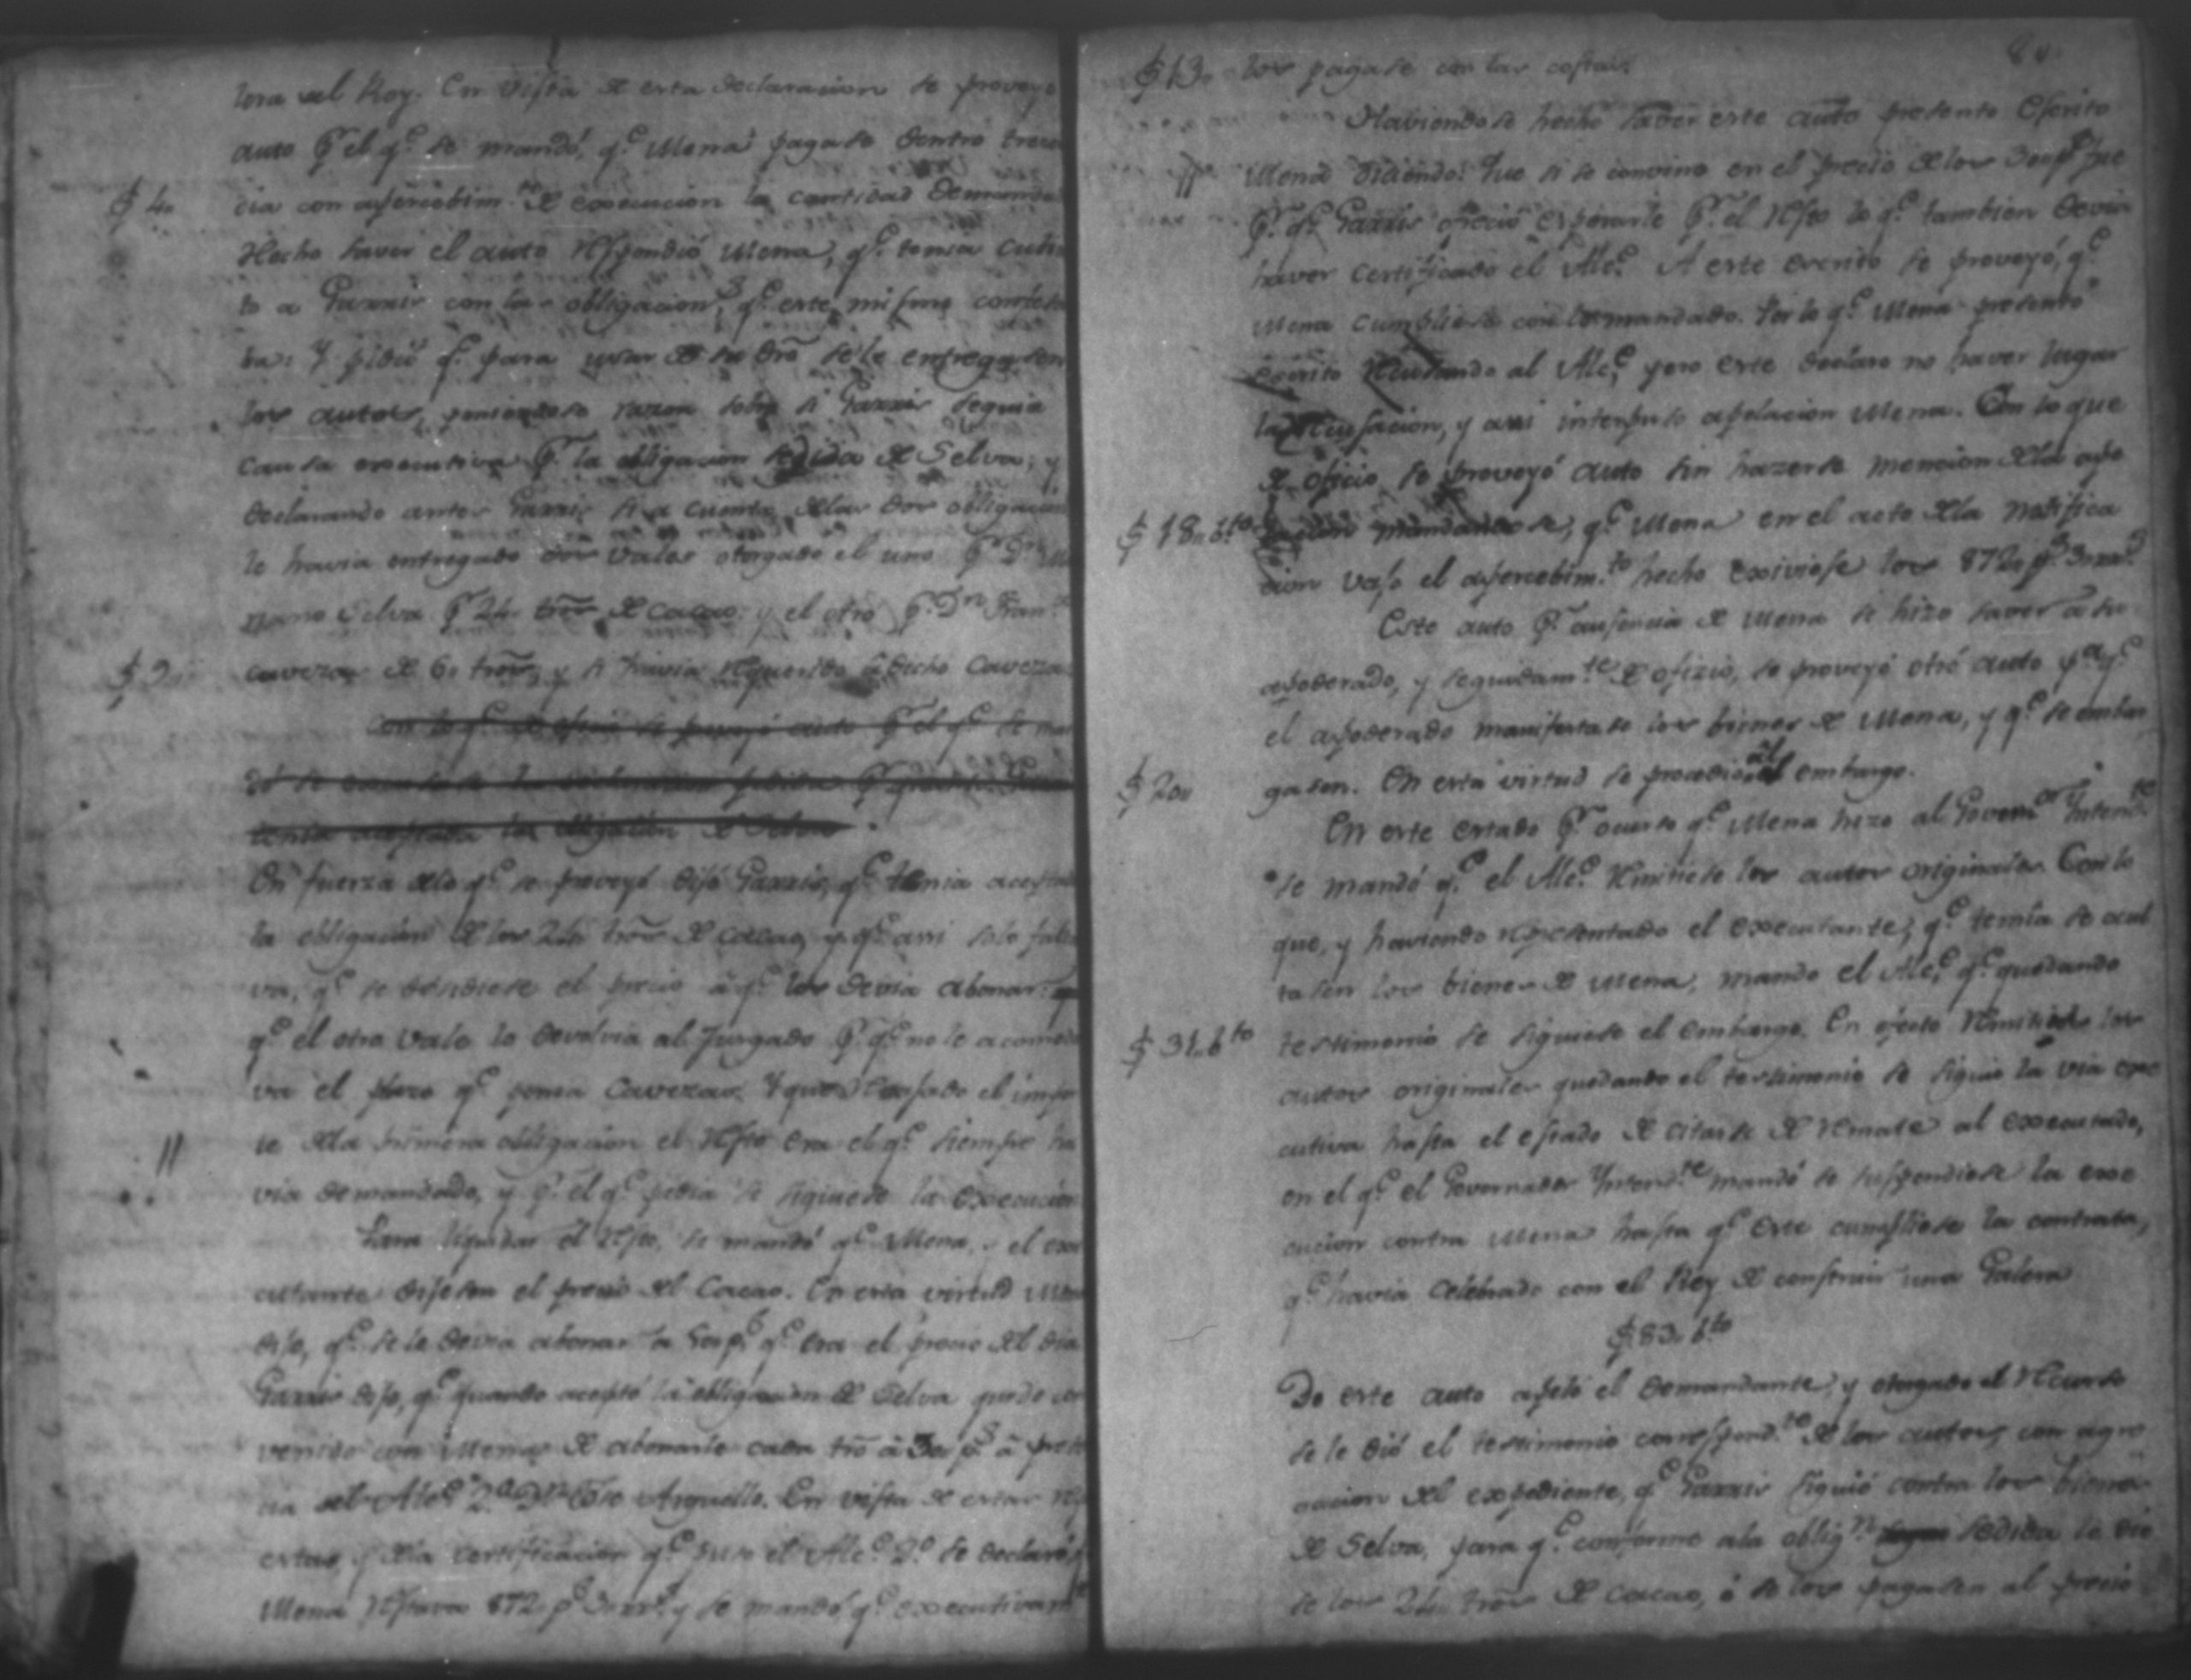 lera del Rey. En vista de esta declaracion se proveyo
auto pr. el qe. se mandó, qe. Mena pagase dentro
§ 4. dia con apercebimto. de execucion la cantidad demanda
Hecho saver el auto respondió Mena, qe. tenia
to a Parris con las obligacions. qe. este mismo
ba: Y pidió qe. para usar de su dro se le entregasen
los autos, poniendose razon sobre si Parris seguia
causa executiva pr. la obligacion sedida de Selva; y
declarando antes Parris si a cuenta de las dos obligacion
le havia entregado dos vales otorgado el uno pr. Dn.
Selva pr. 24. tros de cacao; y el otro pr. Dn. Fran
§ 9. Cavezas de 6. tros, y si havia requerido a dicho Cavezas
con lo qe. de oficio se proveyó auto pr. el qe. se man
dó se
la obligacion de Selva
En fuerza de lo qe. se proveyó dijo Parris, qe. tenia acepta
la obligacion de los 24. tros de cacao, y qe. assi solo falta
va, qe. se el precio a qe. los devia abonar:
qe. el otro vale lo devolvia al Juzgado pr. qe. no le acomoda
va el plazo qe. ponia Cavezas. Y que el impor
te de la primera obligacion el resto era el qe. siempre ha
via demandado, y pr. el qe. pedia se siguiese la execucion
Para liquidar el resto, se mandó qe. Mena, y el exe
cutante dijesen el precio del Cacao. En esta virtud Mena
dijo, qe. se le devia abonar a ps. qe. era el precio del dia
Parris dijo, qe. quando aceptó la obligacion de Selva quedo con
venido con Mena de abonarle cada tro a 30 ps. a presen
cia del Alce. 2o. Dn. Arguello. En vista de estas
estas, y de la certificacion qe. puso el Alce. 2o. se declaró,
Mena restava 872. ps. 3. rrs. y se mandó qe. executivamte
§ 13. los pagase con las costas.
Haviendose hecho saver este auto presento Escrito
Mena diciendo: Que si se convino en el precio de los 30 ps. fue
pr. qe. Parris ofreció esperarle pr. el resto lo qe. tambien devia
haver certificado el Alce. A este escrito se proveyó, qe.
Mena cumpliese con lo mandado. Por lo qe. Mena presento
escrito recusando al Alce. pero este declaro no haver lugar
la recusacion, y assi interpuso apelacion Mena. Con lo que
de oficio se proveyó auto sin hazerse mencion de la ape
§ 18. bto. lacion mandandose, qe. Mena en el acto de la notifica
cion vajo el apercebimto. hecho exiviese los 872 ps. 3 rrs.
Este auto pr. ausencia de Mena se hizo saver a su
apoderado, y seguidamte. de ofizio, se proveyó otro auto pa. qe.
el apoderado manifestase los bienes de Mena, y qe. se embar
§ 20. gasen. En esta virtud se procedio al embargo.
En este estado pr. ocurso qe. Mena hizo al Governor. Intendte.
se mandó qe. el Alce. remitiese los autos originales. Con lo
que, y haviendo representado el executante, qe. temia se ocul
tasen los bienes de Mena, mando el Alce. qe. quedando
§ 31. bto testimonio se siguiese el embargo. En efecto remitidos los
autos originales quedando el testimonio se siguio la via exe
cutiva hasta el estado de citarse de remate al executado,
en el qe. el Governador Intendte. mandó se suspendiese la exe
cucion contra Mena hasta qe. este cumpliese la contrata,
qe. havia celebrado con el Rey de construir una Galera
§ 83. bto
De este auto apeló el demandante, y otorgado el recurso
se le dió el testimonio correspondte. de los autos, con agre
gacion del expediente, qe. Parris siguió contra los bienes
de Selva, para qe. conforme a la obligon. sedida le die
se los 24. tros de cacao, ó se los pagasen al precio